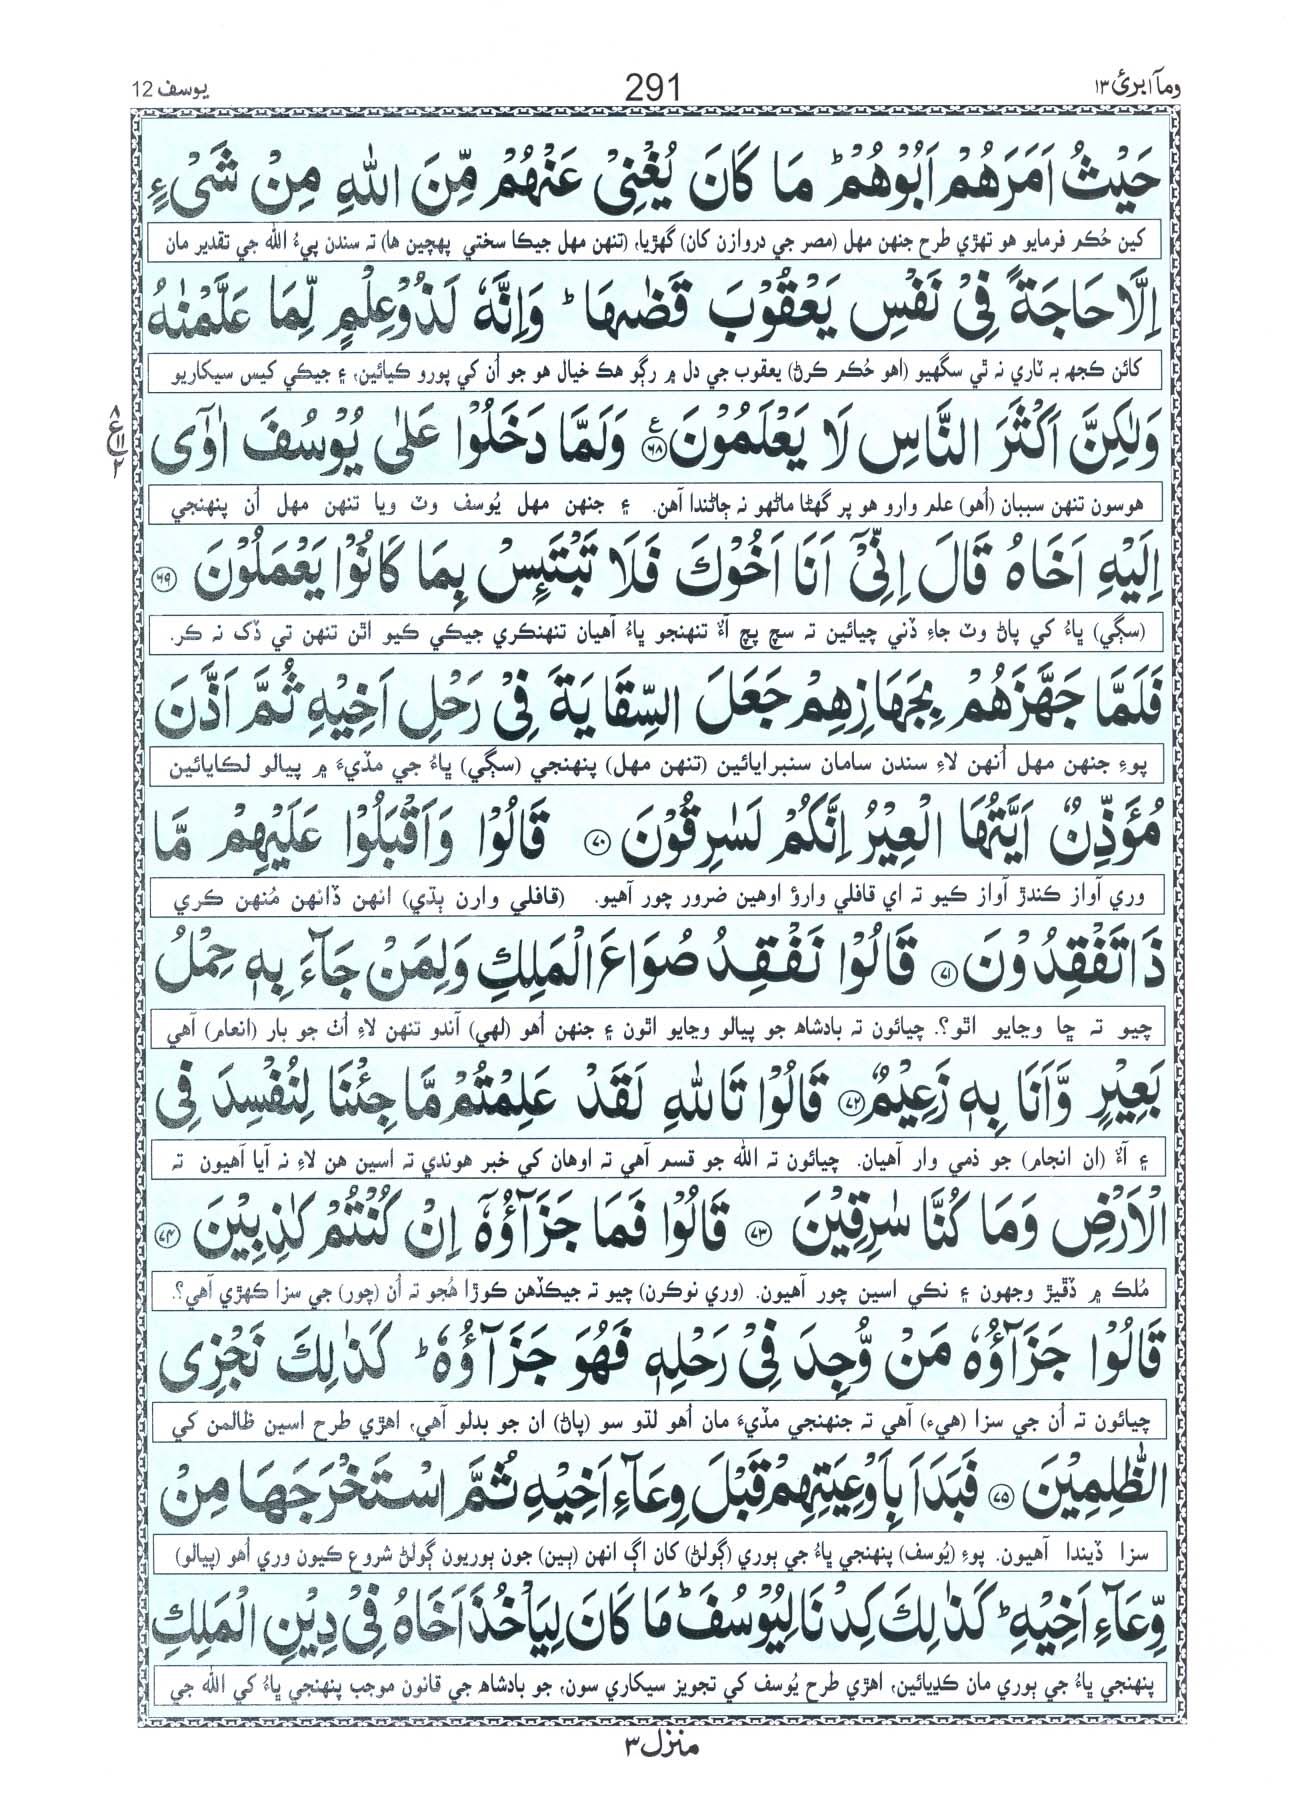 وما ابرئ ۱۳
291
يوسف 12
حَيْثُ اَمَرَهُمْ اَبُوْهُمْ ؕ مَا كَانَ يُغْنِيْ عَنْهُمْ مِّنَ اللّٰهِ مِنْ شَيْءٍ
کين حُڪم فرمايو هو تهڙي طرح جنهن مهل (مصر جي دروازن کان) گهڙيا، (تنهن مهل جيڪا سختي پهچين ها) ته سندن پيءُ الله جي تقدير مان
اِلَّا حَاجَةً فِيْ نَفْسِ يَعْقُوْبَ قَضٰىهَا ؕ وَاِنَّهٗ لَذُوْ عِلْمٍ لِّمَا عَلَّمْنٰهُ
کائن ڪجهہ بہ ٽاري نہ ٿي سگهيو (اهو حُڪم ڪرڻ) يعقوب جي دل ۾ رڳو هڪ خيال هو جو اُن کي پورو ڪيائين، ۽ جيڪي کيس سيکاريو
وَلٰكِنَّ اَكْثَرَ النَّاسِ لَا يَعْلَمُوْنَ ۶۸ ع وَلَمَّا دَخَلُوْا عَلٰى يُوْسُفَ اٰوٰٓى
۸ ع ۱۱ ۲
هوسون تنهن سببان (اُهو) علم وارو هو پر گهڻا ماڻهو نہ ڄاڻندا آهن. ۽ جنهن مهل يُوسف وٽ ويا تنهن مهل اُن پنهنجي
اِلَيْهِ اَخَاهُ قَالَ اِنِّيْٓ اَنَا اَخُوْكَ فَلَا تَبْتَئِسْ بِمَا كَانُوْا يَعْمَلُوْنَ ۶۹
(سڳي) ڀاءُ کي پاڻ وٽ جاءِ ڏني چيائين تہ سچ پچ آءٌ تنهنجو ڀاءُ آهيان تنهنڪري جيڪي ڪيو اٿن تنهن تي ڏک نہ ڪر.
فَلَمَّا جَهَّزَهُمْ بِجَهَازِهِمْ جَعَلَ السِّقَايَةَ فِيْ رَحْلِ اَخِيْهِ ثُمَّ اَذَّنَ
پوءِ جنهن مهل اُنهن لاءِ سندن سامان سنبرايائين (تنهن مهل) پنهنجي (سڳي) ڀاءُ جي مڏيءَ ۾ پيالو لڪايائين
مُؤَذِّنٌ اَيَّتُهَا الْعِيْرُ اِنَّكُمْ لَسٰرِقُوْنَ ۷۰ قَالُوْا وَاَقْبَلُوْا عَلَيْهِمْ مَّا
وري آواز ڪندڙ آواز ڪيو تہ اي قافلي وارؤ اوهين ضرور چور آهيو. (قافلي وارن ٻڌي) انهن ڏانهن مُنهن ڪري
ذَا تَفْقِدُوْنَ ۷۱ قَالُوْا نَفْقِدُ صُوَاعَ الْمَلِكِ وَلِمَنْ جَآءَ بِهٖ حِمْلُ
چيو تہ ڇا وڃايو اٿو؟. چيائون تہ بادشاھ جو پيالو وڃايو اٿون ۽ جنهن اُهو (لهي) آندو تنهن لاءِ اُٺ جو بار (انعام) آهي
بَعِيْرٍ وَّاَنَا بِهٖ زَعِيْمٌ ۷۲ قَالُوْا تَاللّٰهِ لَقَدْ عَلِمْتُمْ مَّا جِئْنَا لِنُفْسِدَ فِي
۽ آءٌ (ان انجام) جو ذمي وار آهيان. چيائون تہ الله جو قسم آهي تہ اوهان کي خبر هوندي تہ اسين هن لاءِ نہ آيا آهيون تہ
الْاَرْضِ وَمَا كُنَّا سٰرِقِيْنَ ۷۳ قَالُوْا فَمَا جَزَآؤُهٗٓ اِنْ كُنْتُمْ كٰذِبِيْنَ ۷۴
مُلڪ ۾ ڏڦيڙ وجهون ۽ نڪي اسين چور آهيون. (وري نوڪرن) چيو تہ جيڪڏهن ڪوڙا هُجو تہ اُن (چور) جي سزا ڪهڙي آهي؟.
قَالُوْا جَزَآؤُهٗ مَنْ وُّجِدَ فِيْ رَحْلِهٖ فَهُوَ جَزَآؤُهٗ ؕ كَذٰلِكَ نَجْزِي
چيائون تہ اُن جي سزا (هيء) آهي تہ جنهنجي مڏيءَ مان اُهو لڌو سو (پاڻ) ان جو بدلو آهي، اهڙي طرح اسين ظالمن کي
الظّٰلِمِيْنَ ۷۵ فَبَدَاَ بِاَوْعِيَتِهِمْ قَبْلَ وِعَآءِ اَخِيْهِ ثُمَّ اسْتَخْرَجَهَا مِنْ
سزا ڏيندا آهيون. پوءِ (يُوسف) پنهنجي ڀاءُ جي ٻوري (ڳولڻ) کان اڳ انهن (ٻين) جون ٻوريون ڳولڻ شروع ڪيون وري اُهو (پيالو)
وِّعَآءِ اَخِيْهِ ؕ كَذٰلِكَ كِدْنَا لِيُوْسُفَ ؕ مَا كَانَ لِيَاْخُذَ اَخَاهُ فِيْ دِيْنِ الْمَلِكِ
پنهنجي ڀاءُ جي ٻوري مان ڪڍيائين، اهڙي طرح يُوسف کي تجويز سيکاري سون، جو بادشاھ جي قانون موجب پنهنجي ڀاءُ کي الله جي
منزل ۳